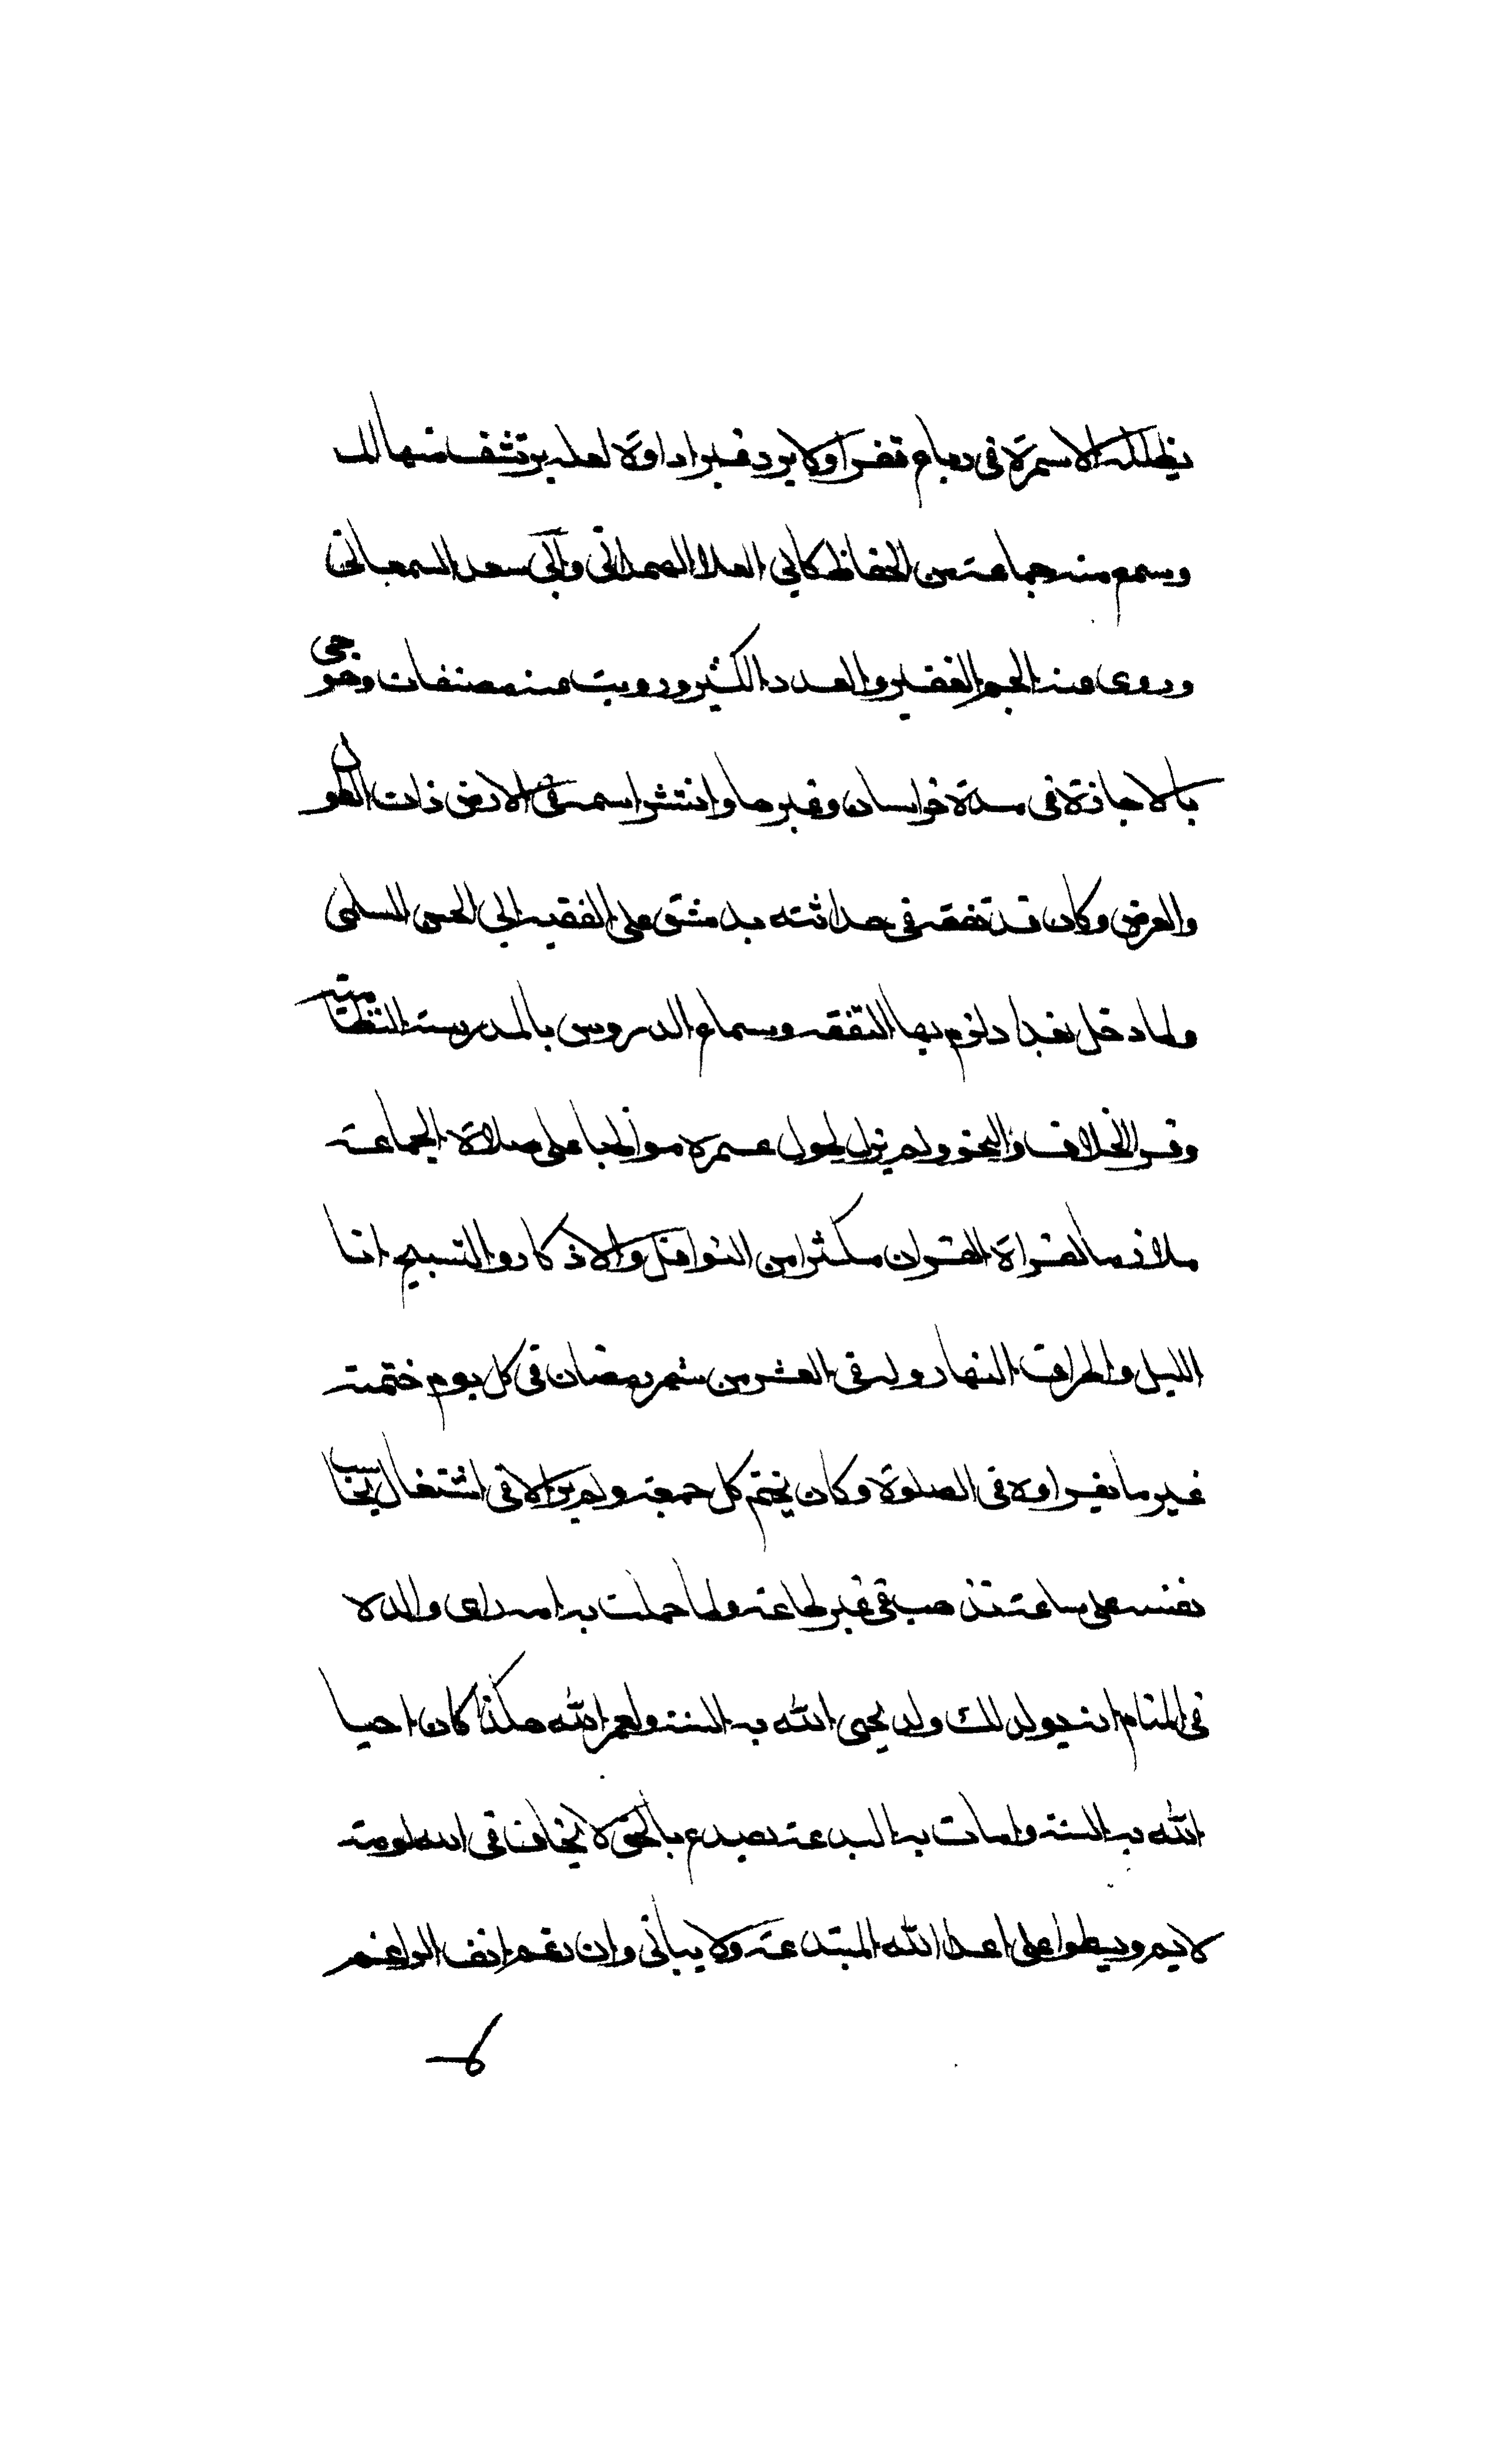 يظلله الا سمرة فى رباع قفرا ولا يرد غير اداوة لعله يرتشف منها ال
وسمع منه جماعة من الحفاظ كابي العلا الهمداني وأبي سعد السمعاني
وروى عنه الجم الغفير والعدد الكثير ورويت عنه مصنفات وهو حى
بالاجازة فى مدة خراسان وغيرها وانتشر اسمه فى الارض ذات الطول
والعرض وكان قد تفقه فى حداثته بدمشق على الفقيه ابي الحسن السلمى
ولما دخل بغداد لزم بها التفقه وسماع الدروس بالمدرسة النظامية
وقرا الخلاف والنحو ولم يزل طول عمره مواظبا على صلاة الجماعة
ملازما لقراة القران مكثرا من النوافل والاذكار والتسبيح انا
الليل واطراف النهار وله فى العشر من شهر رمضان فى كل يوم ختمة
غير ما يقراوه فى الصلوة وكان يختم كل جمعة ولم ير الا فى اشتغال يحاسب
نفسه على ساعة تذهب فى غير طاعة ولما حملت به امه راى والده
فى المنام انه يولد لك ولد يحيى الله به السنة ولعمر الله هكذا كان احيا
الله به السنة وامات به البدعة يصدع بالحق لا يخاف فى الله لومة
لايم ويسطوا على اعدا الله المبتدعة ولا يبالى وان رغم انف الراغم